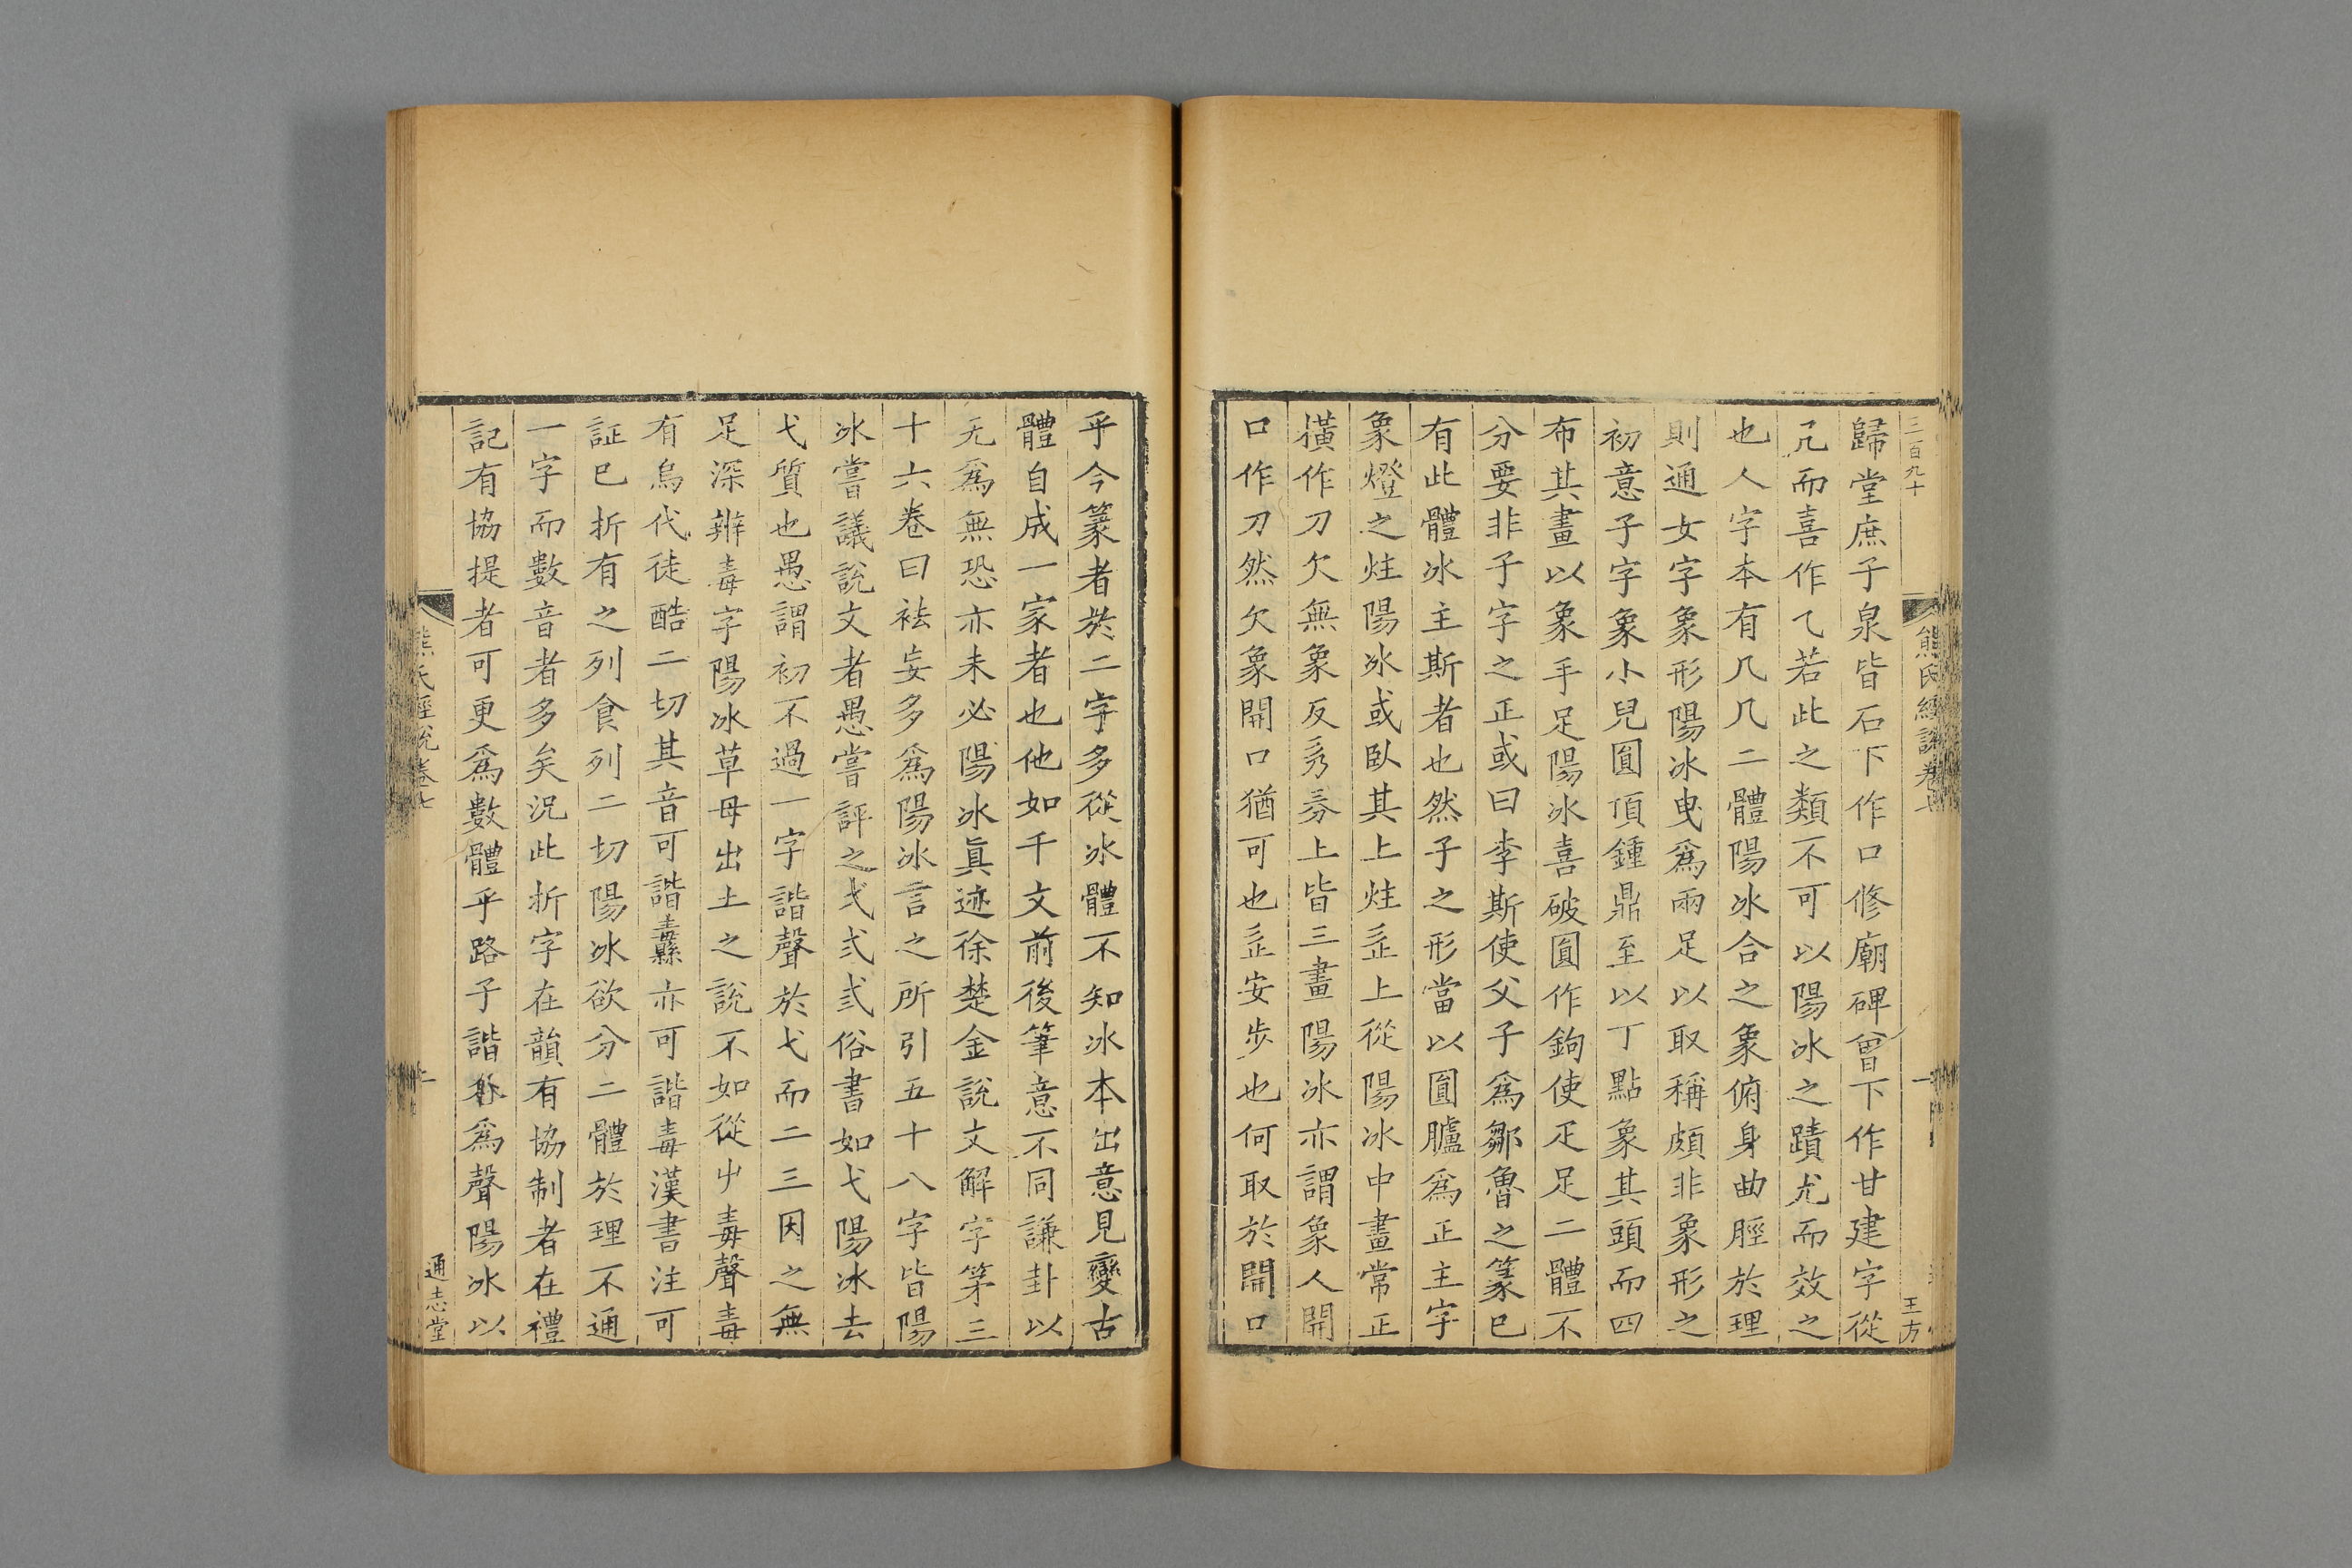 三百九十
熊氏經說卷七
一
王方
歸堂庶子泉皆石下作口修廟碑曾下作甘建字從
几而喜作乁若此之類不可以陽冰之蹟尤而效之
也人字本有几几二體陽冰合之象俯身曲脛於理
則通女字象形陽冰曳爲兩足以取稱頗非象形之
初意子字象小兒圓頂鍾鼎至以丁點象其頭而四
布其畫以象手足陽冰喜破圓作鉤使疋足二體不
分要非子字之正或曰李斯使父子爲鄒魯之篆巳
有此體冰主斯者也然子之形當以圓臚爲正主字
象燈之炷陽冰或臥其上炷上從陽冰中畫常正
橫作刀欠無象反上皆三畫陽冰亦謂象人開
口作刀然欠象開口猶可也安步也何取於開口
乎今篆者於二字多從冰體不知冰本出意見變古
體自成一家者也他如千文前後筆意不同謙卦以
无爲無恐亦未必陽冰眞迹徐楚金說文解字第三
十六卷曰袪妄多爲陽冰言之所引五十八字皆陽
冰嘗議說文者愚嘗評之弌弍弎俗書如弋陽冰去
弋質也愚謂初不過一字諧聲於弋而二三因之無
足深辨毒字陽冰草母出土之說不如從屮毒聲毒
有烏代徒酷二切其音可諧纛亦可諧毒漢書注可
証巳折有之列食列二切陽冰欲分二體於理不通
一字而數音者多矣況此折字在韻有協制者在禮
記有協提者可更爲數體乎路子諧爲聲陽冰以
熊氏經說卷七
二
通志堂